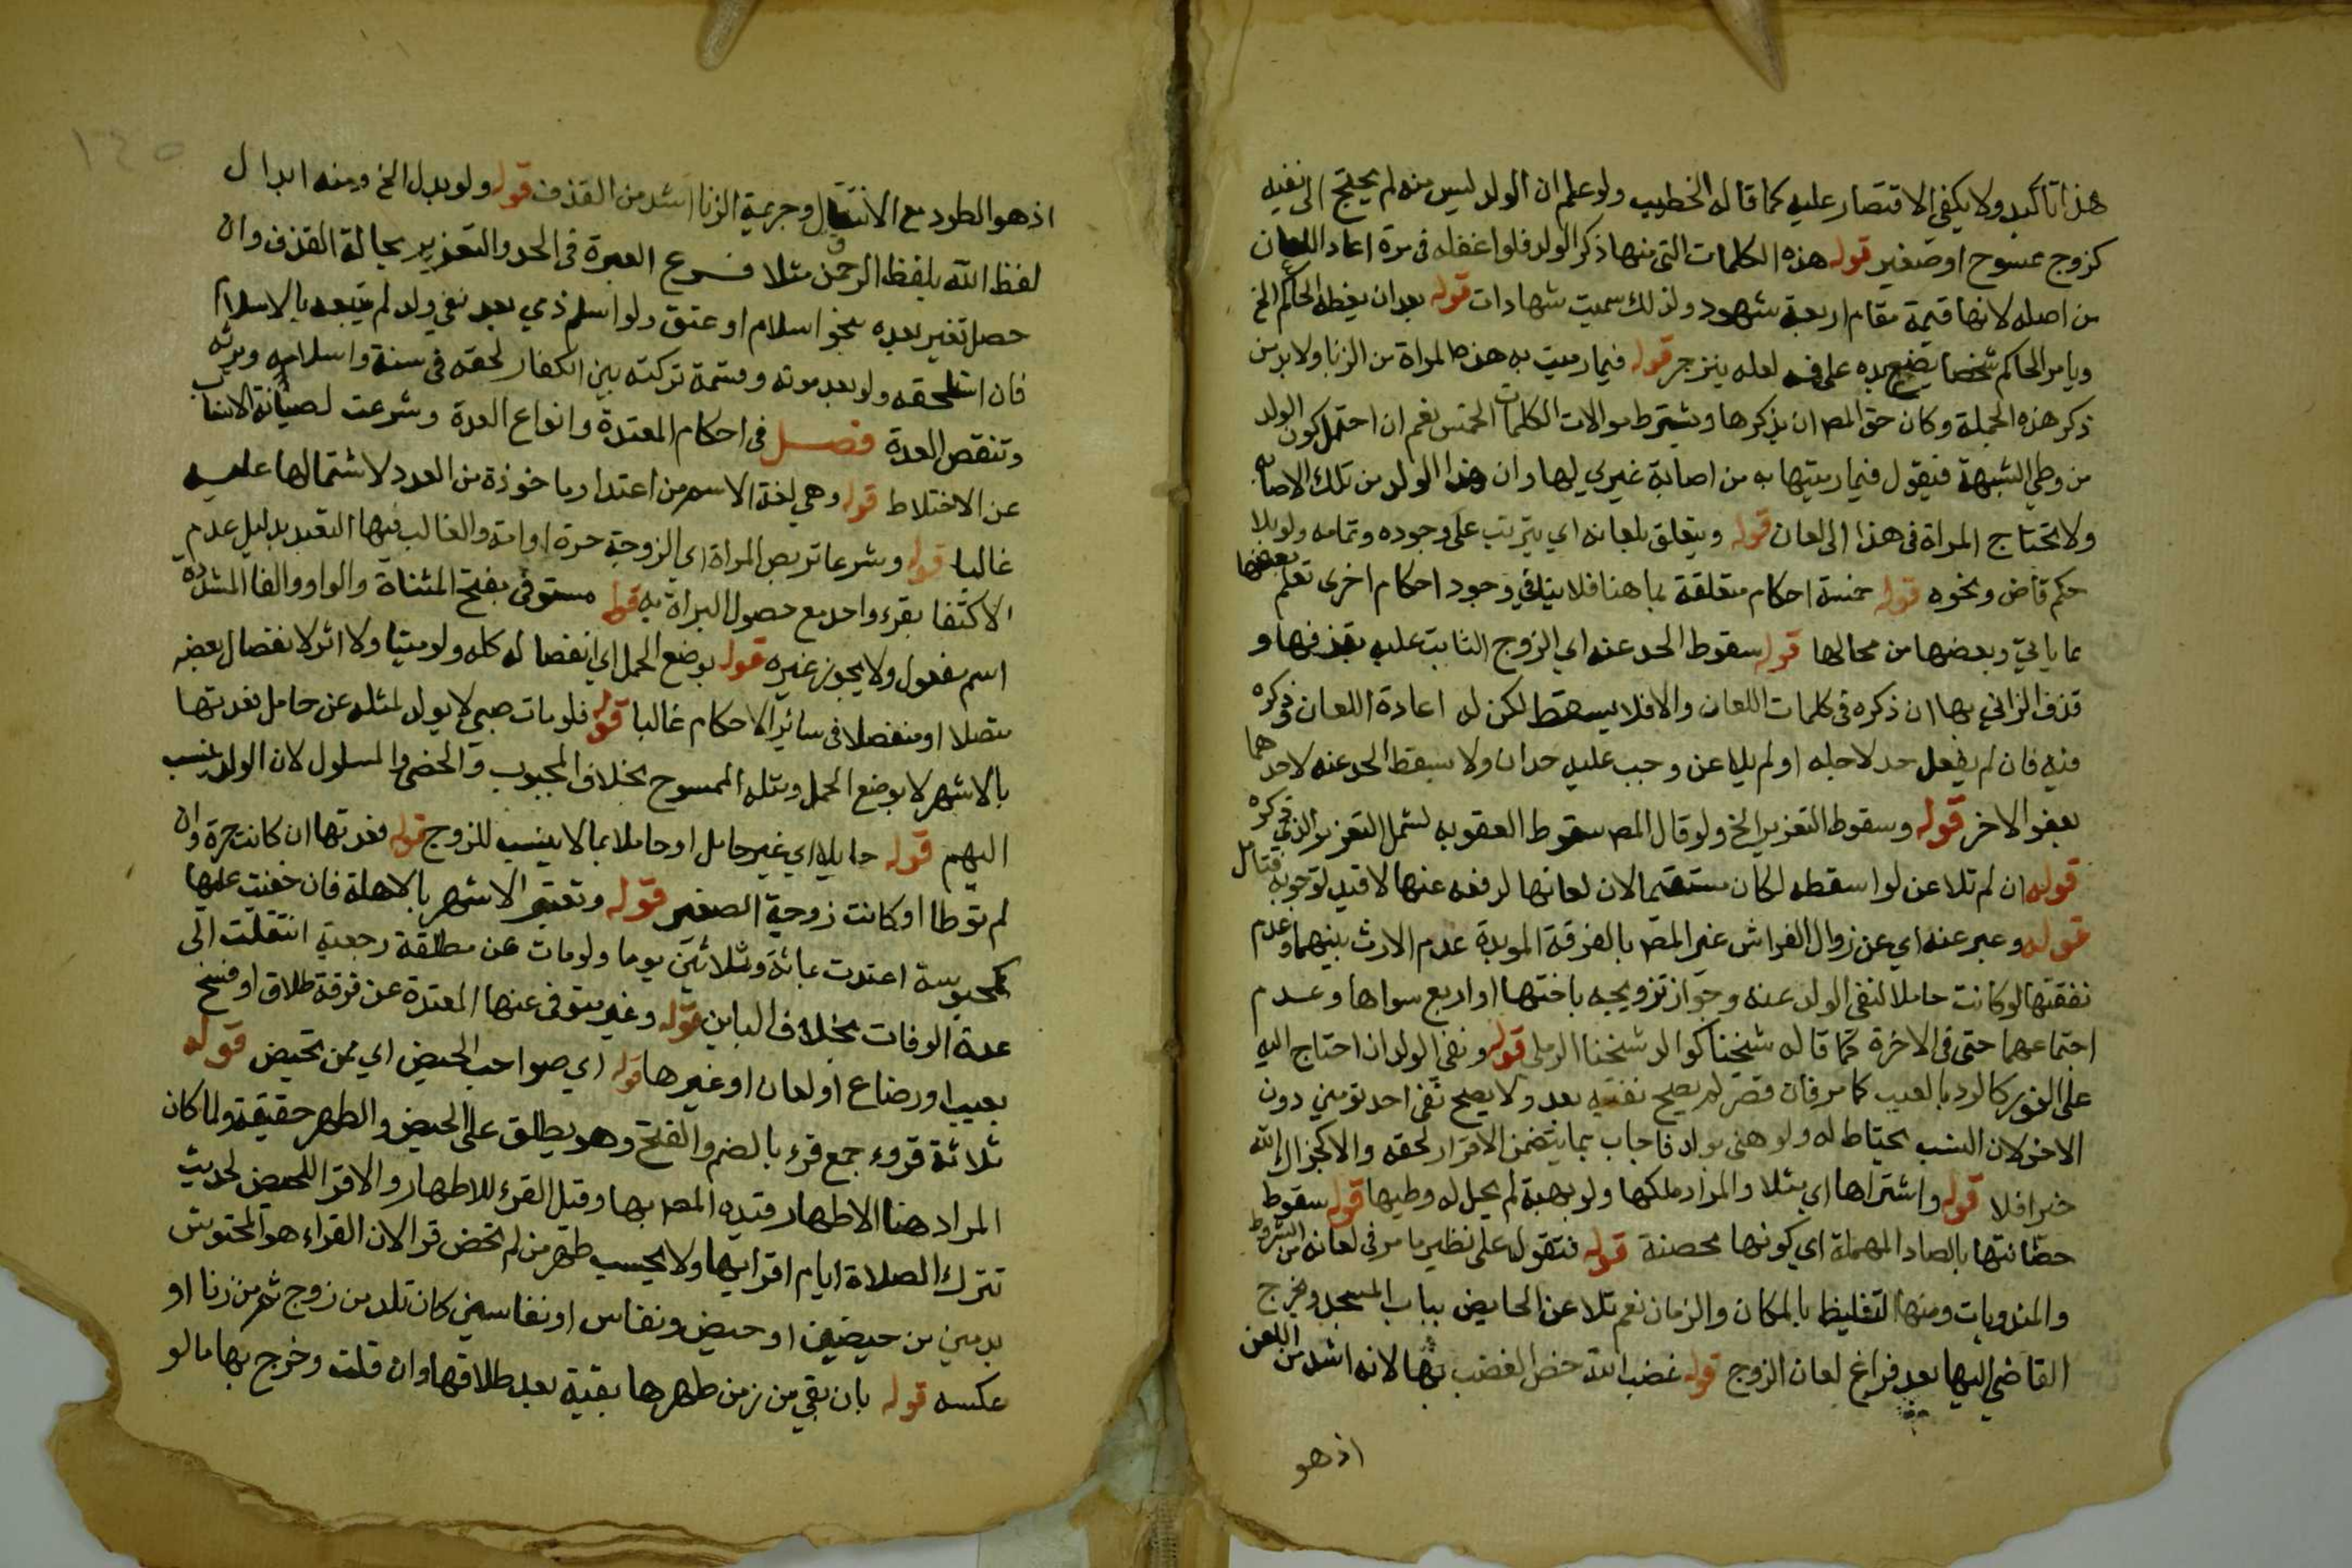 هذا تاكيد ولا يكفى الاقتصار عليه كما قاله الخطيب ولو علم ان الولد ليس منه لم يحتج الى نفيه
كزوج ممسوح او صغير قوله هذه الكلمات التى منها ذكر الولد فلو اغفله فى مرة اعاد اللعان
من اصله لانها قيمة مقام اربعة شهود ولذلك سميت شهادات قوله بعد ان يعظه الحاكم الخ
ويامر الحاكم شخصا يضع يده على فيه لعله ينزجر قوله فيما رميت به هذه المراة من الزنا ولا بد من
ذكر هذه الجملة وكان حق المص ان يذكرها ويشترط موالات الكلمات الخمس نعم ان احتمل كون الولد
من وطي الشبهة فيقول فيما رميتها به من اصابة غيري لها وان هذا الولد من تلك الاصابة
ولا تحتاج المراة فى هذا الى لعان قوله ويتعلق بلعانه اي يترتب على وجوده وتمامه ولو بلا
حكم قاض ونحوه قوله خمسة احكام متعلقة بما هنا فلا ينافي وجود احكام اخرى تعلم بعضها
مما ياتي وبعضها من محالها قوله سقوط الحد عنه اي الزوج الثابت عليه بقذفها و
قذف الزاني بها ان ذكره فى كلمات اللعان والا فلا يسقط لكن له اعادة اللعان وذكره
فيه فان لم يفعل حد لاجله او لم يلاعن وجب عليه حدان ولا يسقط الحد عنه لاحدهما
بعفو الاخر قوله وسقوط التعزير الخ ولو قال المص سقوط العقوبه لشمل التعزير الذي ذكره
قوله ان لم تلاعن لو اسقطه لكان مستقيما لان لعانها لدفعه عنها لا قيد لوجوبه فتامل
قوله وعبر عنه اي عن زوال الفراش غير المص بالفرقة الموبدة عدم الارث بينهما وعدم
نفقتها لو كانت حاملا لنفى الولد عنه وجواز تزويجه باختها او اربع سواها وعدم
اجتماعهما حتى فى الاخرة كما قاله شيخنا كوالد شيخنا الرملى قوله ونفى الولد ان احتاج اليه
على الفور كالرد بالعيب كما مر فان قصر لم يصح نفيه بعد ولا يصح نفى احد تومين دون
الاخر لان النسب يحتاط له ولو هنى بولد فاجاب بما يتضمن الاقرار لحقه والا كجزاك الله
خيرا فلا قوله واشتراها اي مثلا والمراد ملكها ولو بهبة لم يحل له وطيها قوله سقوط
حصانتها بالصاد المهملة اي كونها محصنة قوله فتقول على نظير ما مر فى لعانه من الشروط
والمندوبات ومنها التغليظ بالمكان والزمان نعم تلاعن الحايض بباب المسجد ويخرج
القاضي اليها بعد فراغ لعان الزوج قوله غضب الله خص الغضب بها لانه اشد من اللعن
اذ هو
١٤٥
اذ هو الطرد مع الانتقام وجريمة الزنا اشد من القذف قوله ولو بدل الخ ومنه ابدال
لفظ الله بلفظ الرحمن مثلا فرع العبرة فى الحد والتعزير بحالة القذف وان
حصل تغير بعده بنحو اسلام او عتق ولو اسلم ذمي بعد نفي ولد لم يتبعه بالاسلام
فان استلحقه ولو بعد موته وقسمة تركته بين الكفار لحقه فى نسبه واسلامه ويرثه
وتنقض القسمة فصل فى احكام المعتدة وانواع العدة وشرعت لصيانة الانساب
عن الاختلاط قوله وهي لغة الاسم من اعتد ماخوذة من العدد لاشتمالها عليه
غالبا قوله وشرعا تربص المراة اي الزوجة حرة او امة والغالب فيها التعبد بدليل عدم
الاكتفا بقرء واحد مع حصول البراة به قوله متوفى بفتح المثناة والواو والفا المشددة
اسم مفعول ولا يجوز غيره قوله بوضع الحمل اي انفصاله كله ولو ميتا ولا اثر لانفصال بعضه
متصلا او منفصلا فى سائر الاحكام غالبا قوله فلو مات صبي لا يولد لمثله عن حامل فعدتها
بالاشهر لا بوضع الحمل ومثله الممسوح بخلاف المجبوب والخصي والمسلول لان الولد ينسب
اليهم قوله حايلا اي غير حامل او حاملا بما لا ينسب للزوج قوله فعدتها ان كانت حرة وان
لم توطا او كانت زوجة الصغير قوله وتعتبر الاشهر بالاهلة فان خفيت عليها
كمحبوسة اعتدت بمائة وثلاثين يوما ولو مات عن مطلقة رجعية انتقلت الى
عدة الوفات بخلاف الباين قوله وغير متوفى عنها المعتدة عن فرقة طلاق او فسخ
بعيب او رضاع او لعان او غيرها قوله اي صواحب الحيض اي ممن تحيض قوله
ثلاثة قروء جمع قرء بالضم والفتح وهو يطلق على الحيض والطهر حقيقة ولما كان
المراد هنا الاطهار قيده المص بها وقيل القرء للاطهار والاقرا للحيض لحديث
تترك الصلاة ايام اقرايها ولا يحسب طهر من لم تحض قرا لان القراء هو المحتوش
بدمين من حيضين او حيض ونفاس او نفاسين كان تلد من زوج ثم من زنا او
عكسه قوله بان بقي من زمن طهرها بقية بعد طلاقها وان قلت وخرج بها ما لو